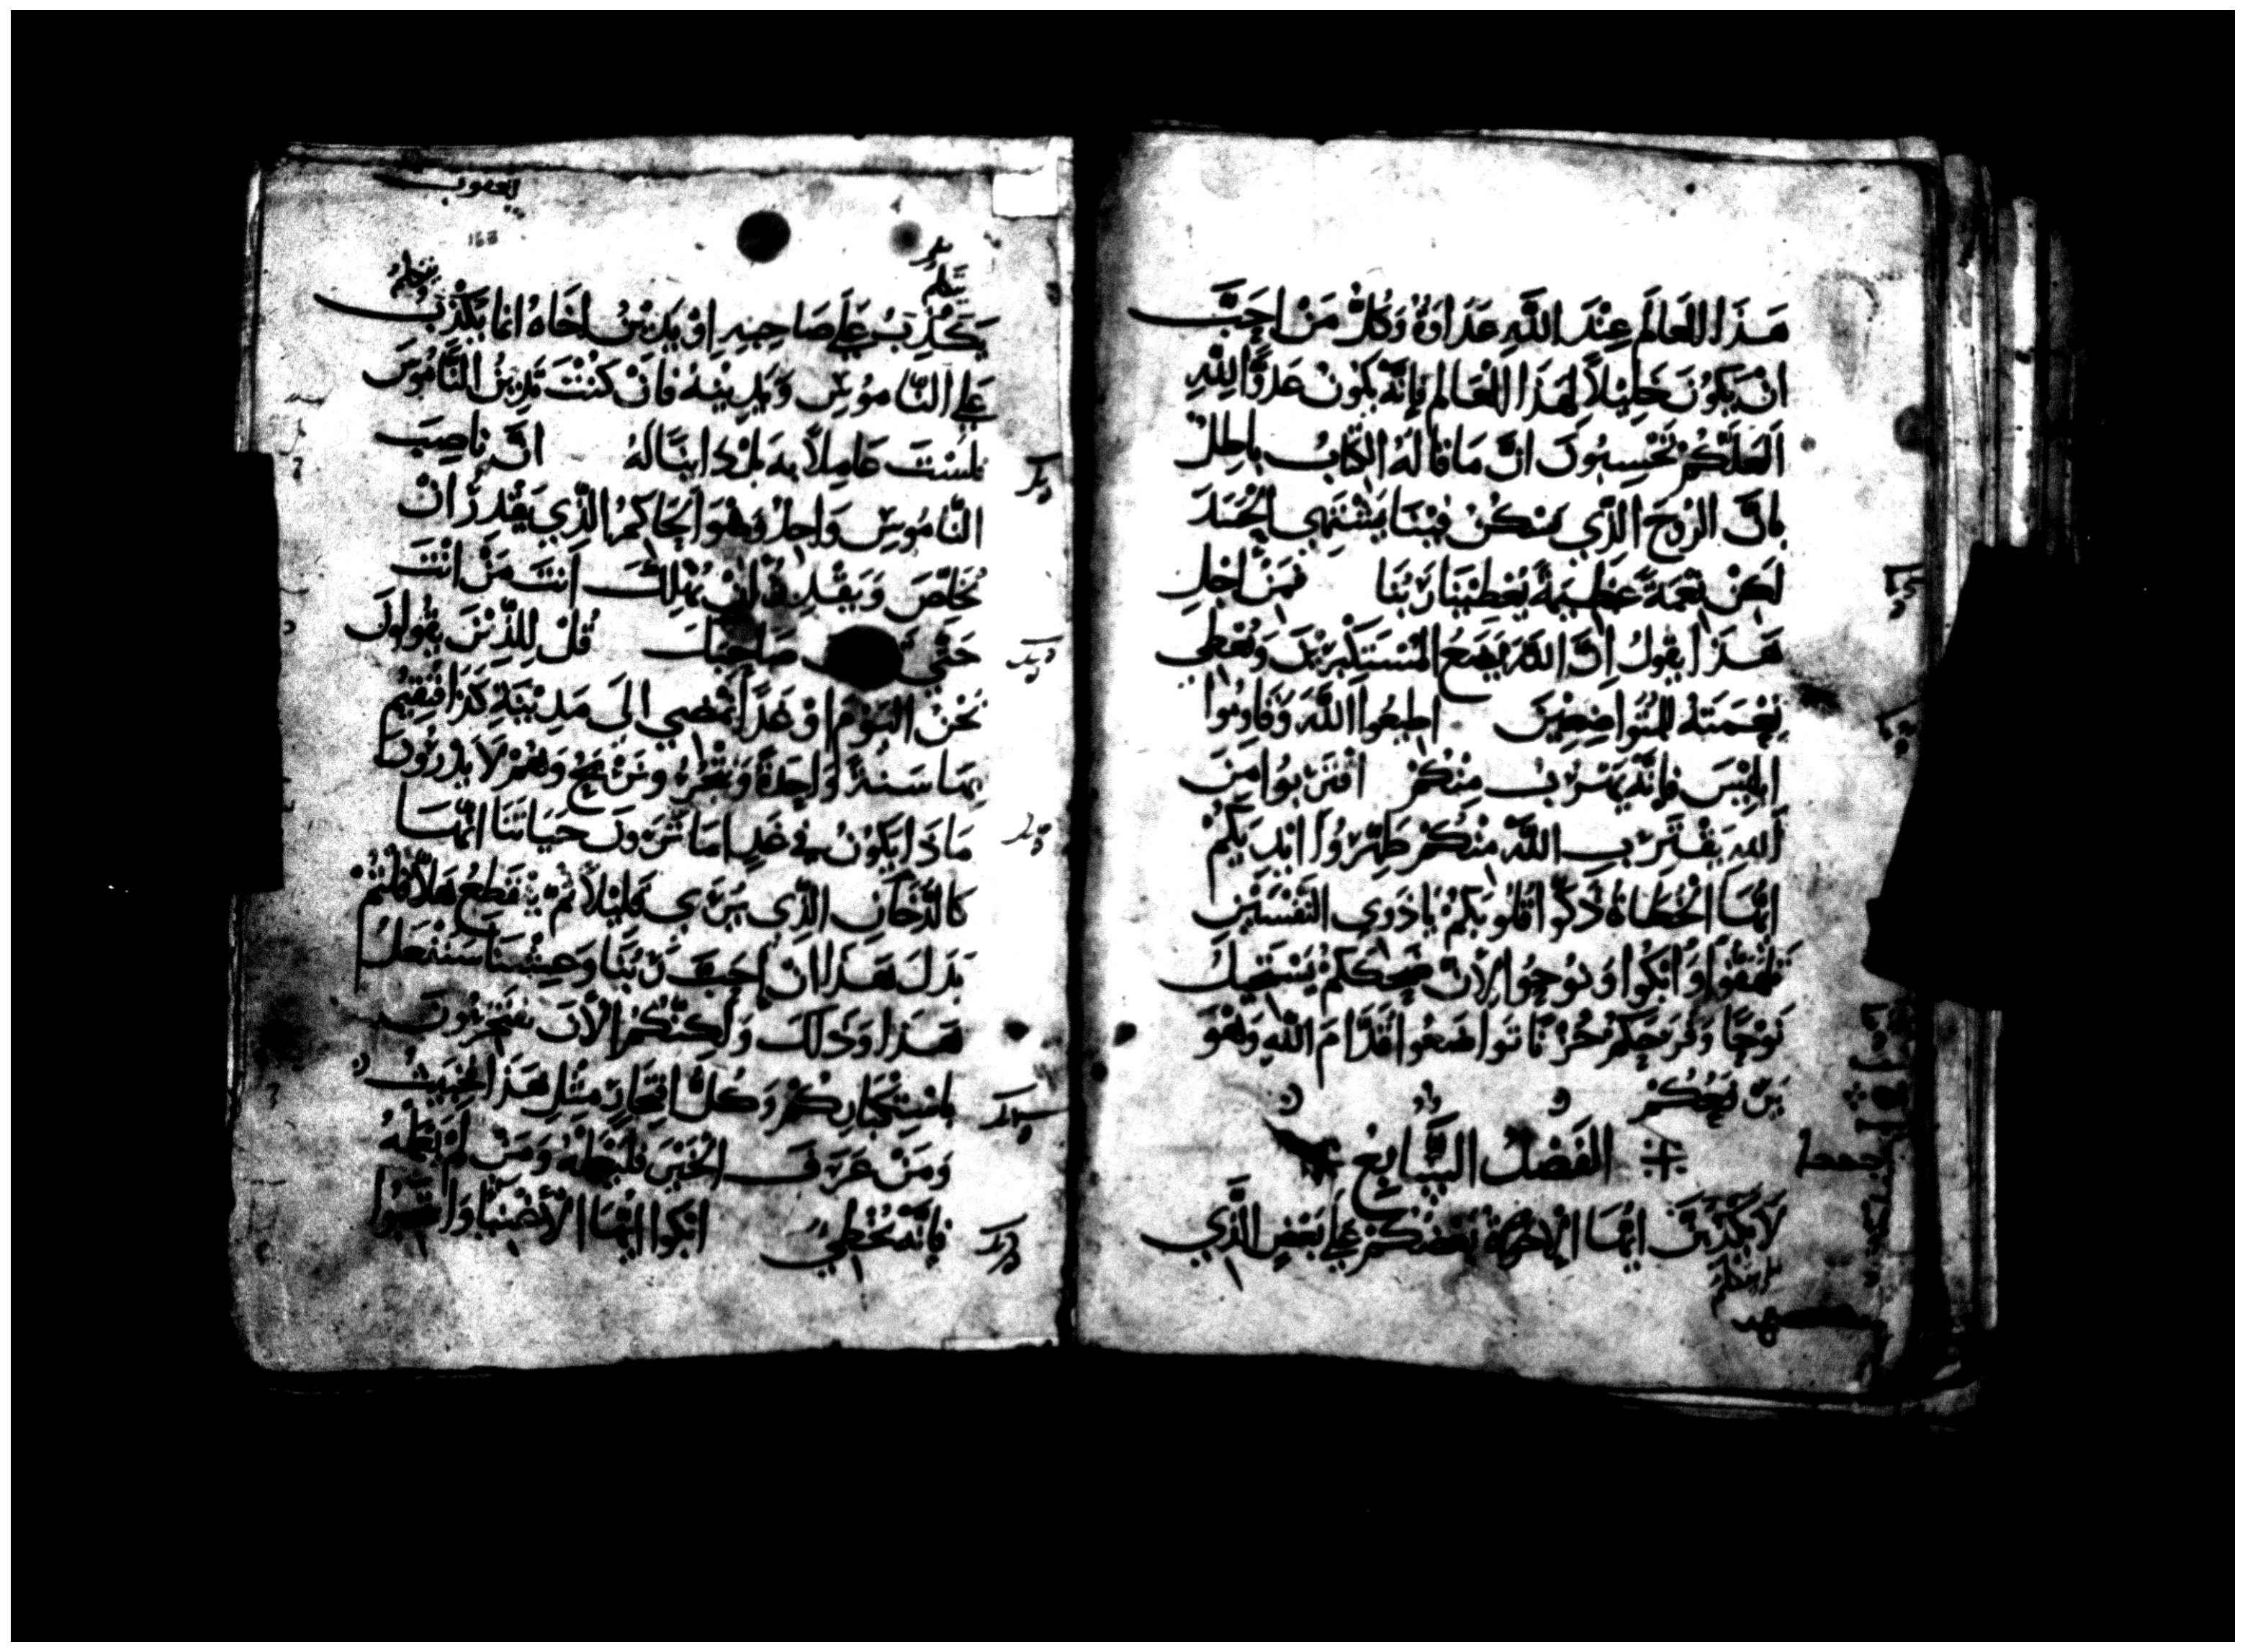 هَذَا العَالَم عِنْدَ اللَّهِ عَدَاوَةٌ وَكُلُّ مَنْ احَبَّ
انْ يَكُونَ خَلِيْلاً لِهَذَا العَالَمِ فَانَّهُ يَكُونْ عَدُوًّا لِلَّهِ
الَعَلَّكُمْ تَحْسِبُونَ انَّ مَا قَالَهُ الكِتَابُ بَاطِلٌ
بِانَّ الرُوحَ الَّذِي يَسْكُنُ فِيْنَا يَشْتَهِي الحَسَدَ
لَكِنْ نِعْمَةً عَظِيمَةً يُعْطِيْنَا رَبُنَا فَمَنْ اجْلِ
هَذَا يَقُولُ انَّ اللَّهَ يَضَعُ المُسْتَكْبِرِيْنَ وَيُعْطِي
نِعْمَتَهُ لِلمُتَوَاضِعِيْنَ اطِيعُوا اللَّهَ وَقَاوِمُوا
ابْلِيْسَ فَانَّهُ يَهْرُبُ مِنْكُمْ اقْتَرِبُوا مِنَ
اللَّهِ يَقْتَرِبِ اللَّهُ مِنْكُمْ طَهِّرُوا ايْدِيَكُمْ
ايُّهَا الخُطَاةُ زَكُّوا قُلُوبَكُمْ يَا ذَوِي النَّفْسَيْنِ
وَابْكُوا وَنُوحُوا لِأَنَّ ضِحْكَكُمْ يَسْتَحِيلُ
نَوْحًا وَفَرَحَكُمْ حُزْنًا تَوَاضَعُوا قُدَّامَ اللَّهِ وَهْوَ
يَرْفَعُكُمْ
الفَصْلُ السَّابِعُ
لَا يَكْذِبَنَّ ايُّهَا الإِخْوَةُ بَعْضُكُمْ عَلَى بَعْضٍ الَّذِي
يعقوب
168
يَكْذِبُ عَلَى صَاحِبِهِ اوْ يَدِيْنُ اخَاهُ انَّمَا يَكْذِبُ
عَلَى النَّامُوسِ وَيَدِيْنُهُ فَانْ كُنْتَ تَدِيْنُ النَّامُوسَ
فَلَسْتَ عَامِلاً بِهِ بَلْ دَايِنًا لَهُ انَّ نَاصِبَ
النَّامُوسِ وَاحِدٌ وَهْوَ الحَاكِمُ الَّذِي يَقْدِرُ انْ
يُخَلِّصَ وَيَقْدِرُ انْ يُهْلِكَ انْتَ مَنْ انْتَ
حَتَّى صَاحِبَكَ قُلْ لِلَّذِيْنَ يَقُولُونَ
نَحْنُ اليَوْمَ اوْ غَدًا نَمْضِي الَى مَدِيْنَةِ كَذَا فَنُقِيمُ
بِهَا سَنَةً وَاحِدَةً وَنَتْجُرُ وَنَرْبَحُ وَهُمْ لَا يَدْرُونَ
مَاذَا يَكُونُ فِي غَدٍ امَا تَرَوْنَ حَيَاتَنَا انَّهَا
كَالدُّخَانِ الَّذِي يُرَى قَلِيْلاً ثُمَّ يَنْقَطِعُ هَلَّا قُلْتُمْ
بَدَلَ هَذَا انْ احَبَّ رَبُّنَا وَعِشْنَا سَنَفْعَلُ
هَذَا وَذَلِكَ وَلَكِنَّكُمُ الآنَ تَفْتَخِرُونَ
بِاسْتِكْبَارِكُمْ وَكُلُّ افْتِخَارٍ مِثْلِ هَذَا خَبِيثٌ
وَمَنْ عَرَفَ الخَيْرَ وَمَنْ لَمْ
فَانَّهُ مُخْطِيٌ ابْكُوا ايُّهَا الأَغْنِيَا